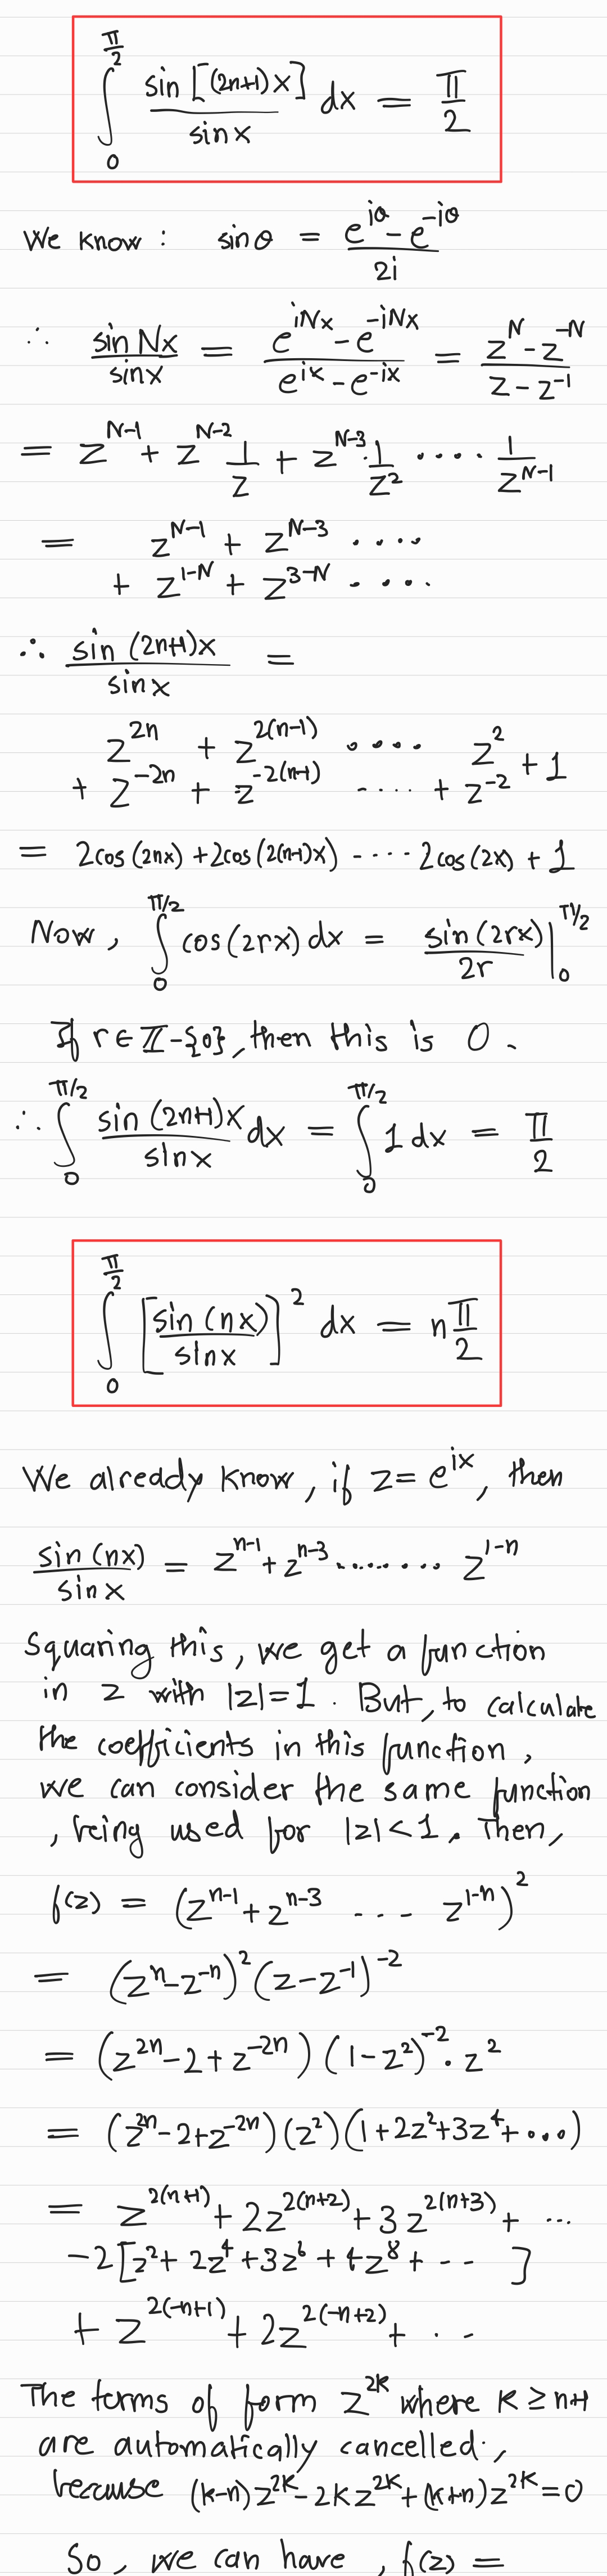 ∫_0^{π/2} sin[(2n+1)x]/sinx dx = π/2
We know : sinθ = (e^{iθ} - e^{-iθ})/2i
∴ sin Nx/sinx = (e^{iNx} - e^{-iNx})/(e^{ix} - e^{-ix}) = (z^N - z^{-N})/(z - z^{-1})
= z^{N-1} + z^{N-2} 1/z + z^{N-3}·1/z^2 .... 1/z^{N-1}
= z^{N-1} + z^{N-3} ....
+ z^{1-N} + z^{3-N} ....
∴ sin (2n+1)x/sin x =
z^{2n} + z^{2(n-1)} .... z^2
+ z^{-2n} + z^{-2(n-1)} ..... + z^{-2} + 1
= 2cos(2nx) + 2cos(2(n-1)x) - ... 2cos(2x) + 1
Now, ∫_0^{π/2} cos(2rx) dx = sin(2rx)/2r |_0^{π/2}
If r ∈ ℤ-{0}, then this is 0.
∴ ∫_0^{π/2} sin (2n+1)x/sinx dx = ∫_0^{π/2} 1 dx = π/2
∫_0^{π/2} [sin (nx)/sinx]^2 dx = n π/2
We already know, if z = e^{ix}, then
sin (nx)/sin x = z^{n-1} + z^{n-3} ........ z^{1-n}
Squaring this, we get a function
in z with |z|=1. But, to calculate
the coefficients in this function,
we can consider the same function
, being used for |z| < 1. Then,
f(z) = (z^{n-1} + z^{n-3} ... z^{1-n})^2
= (z^n - z^{-n})^2 (z - z^{-1})^{-2}
= (z^{2n} - 2 + z^{-2n}) (1 - z^2)^{-2} · z^2
= (z^{2n} - 2 + z^{-2n})(z^2)(1 + 2z^2 + 3z^4 + ...)
= z^{2(n+1)} + 2z^{2(n+2)} + 3z^{2(n+3)} + ...
-2[z^2 + 2z^4 + 3z^6 + 4z^8 + -- ]
+ z^{2(-n+1)} + 2z^{2(-n+2)} + . . -
The terms of form z^{2k} where k ≥ n+1
are automatically cancelled,
because (k-n)z^{2k} - 2kz^{2k} + (k+n)z^{2k} = 0
So, we can have, f(z) =